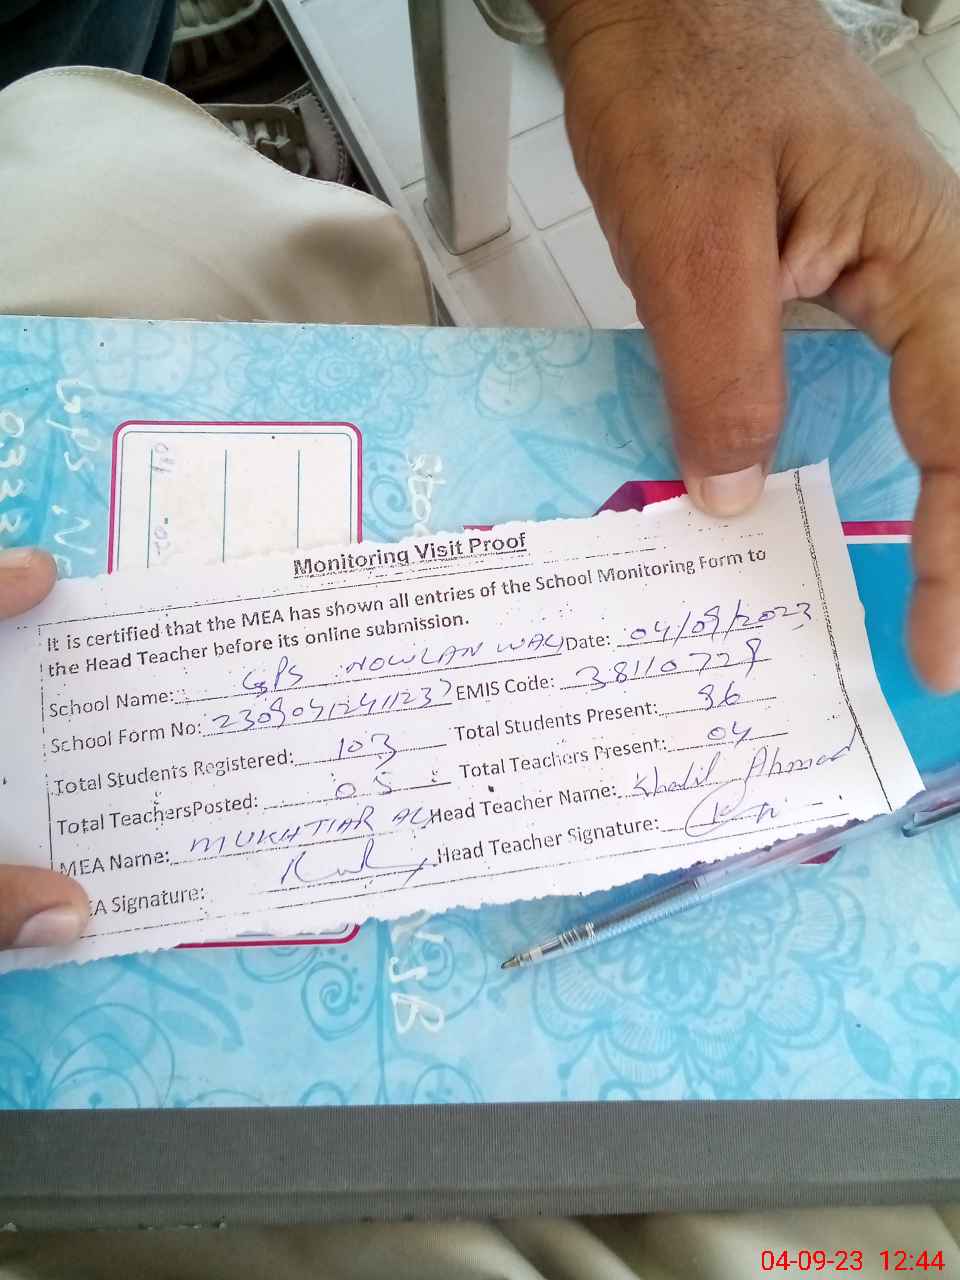 Monitoring Visit Proof
It is certified that the MEA has shown all entries of the School Monitoring Form to
the Head Teacher before its online submission.
School Name: GPS NOWLAN WALI Date: 04/09/2023
School Form No: EMIS Code: 38110729
Total Students Registered: 103 Total Students Present: 86
Total TeachersPosted: 05 Total Teachers Present: 04
MEA Name: MUKHTIAR ALI Head Teacher Name: Khalil Ahmad
EA Signature: Head Teacher Signature:
04-09-23 12:44